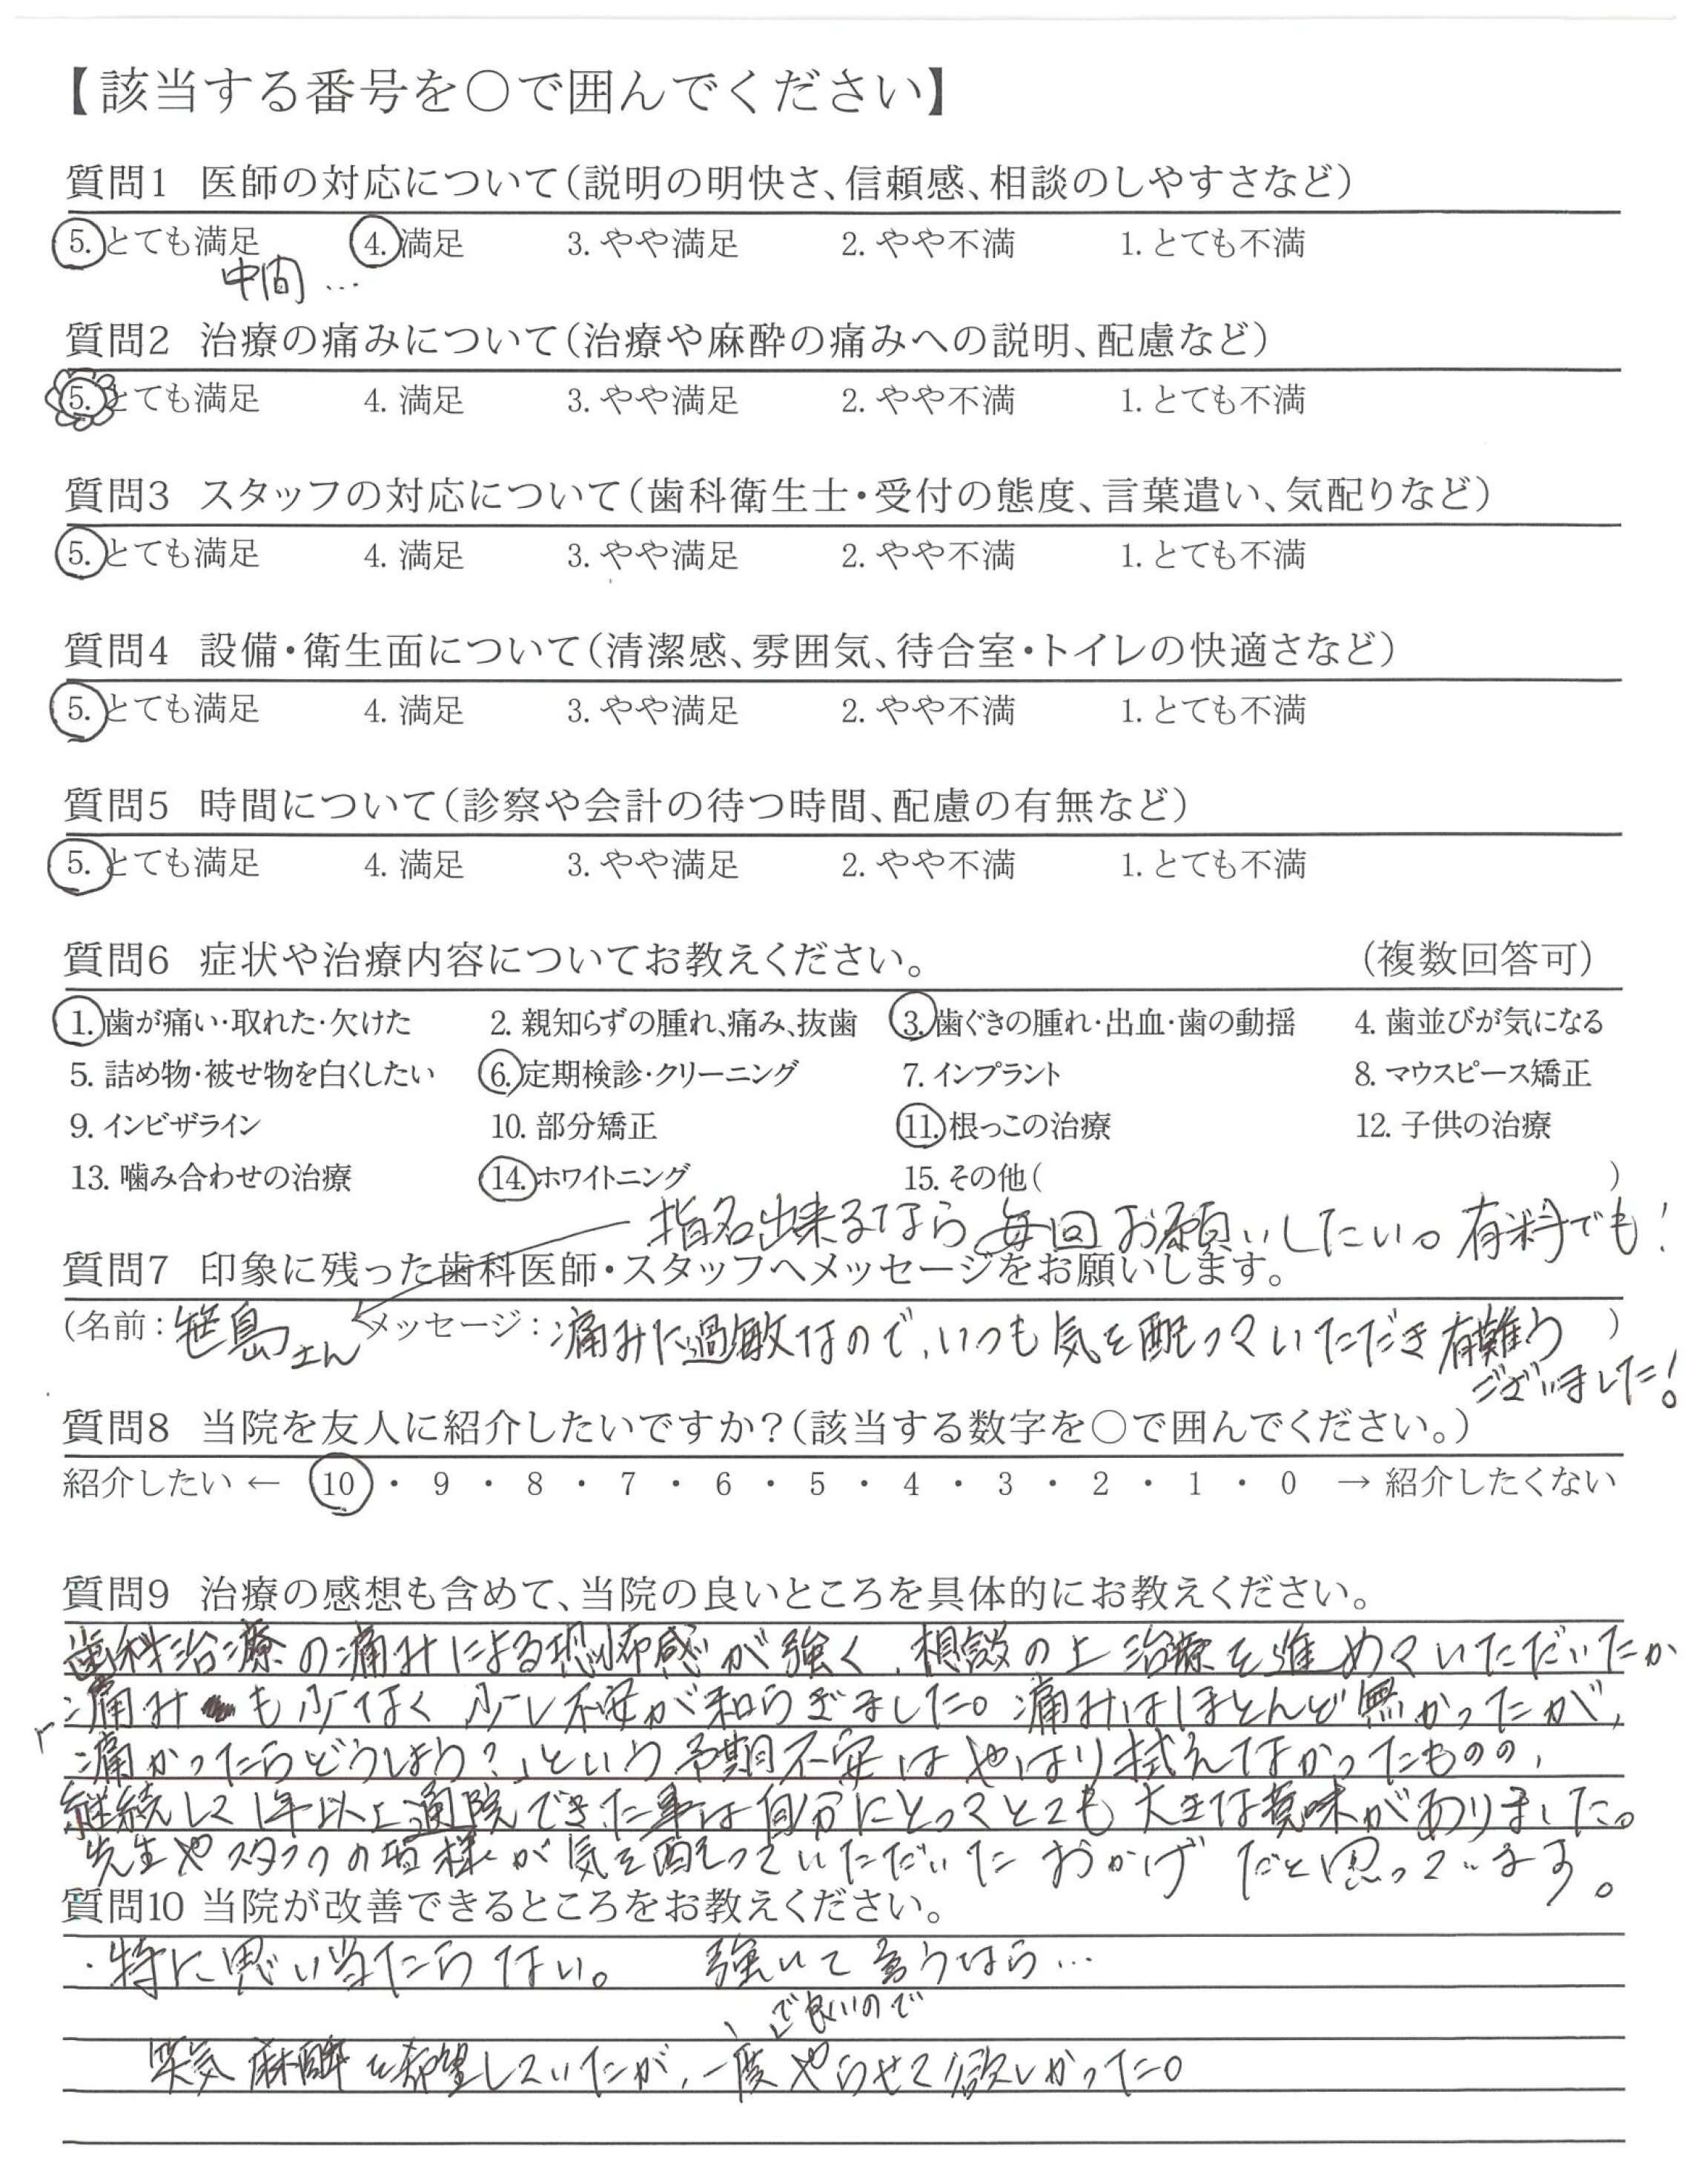 【該当する番号を○で囲んでください】
質問1 医師の対応について(説明の明快さ、信頼感、相談のしやすさなど)
5. とても満足 4. 満足 3. やや満足 2. やや不満 1. とても不満
中間…
質問2 治療の痛みについて(治療や麻酔の痛みへの説明、配慮など)
5. とても満足 4. 満足 3. やや満足 2. やや不満 1. とても不満
質問3 スタッフの対応について(歯科衛生士・受付の態度、言葉遣い、気配りなど)
5. とても満足 4. 満足 3. やや満足 2. やや不満 1. とても不満
質問4 設備・衛生面について(清潔感、雰囲気、待合室・トイレの快適さなど)
5. とても満足 4. 満足 3. やや満足 2. やや不満 1. とても不満
質問5 時間について(診察や会計の待つ時間、配慮の有無など)
5. とても満足 4. 満足 3. やや満足 2. やや不満 1. とても不満
質問6 症状や治療内容についてお教えください。 (複数回答可)
1. 歯が痛い・取れた・欠けた 2. 親知らずの腫れ、痛み、抜歯 3. 歯ぐきの腫れ・出血・歯の動揺 4. 歯並びが気になる
5. 詰め物・被せ物を白くしたい 6. 定期検診・クリーニング 7. インプラント 8. マウスピース矯正
9. インビザライン 10. 部分矯正 11. 根っこの治療 12. 子供の治療
13. 噛み合わせの治療 14. ホワイトニング 15. その他( )
指名出来るなら毎回お願いしたい。有料でも!
質問7 印象に残った歯科医師・スタッフへメッセージをお願いします。
(名前: 笹島さん メッセージ: 痛みに過敏なので、いつも気を配っていただき有難う )
ございました!
質問8 当院を友人に紹介したいですか?(該当する数字を○で囲んでください。)
紹介したい ← 10 ・ 9 ・ 8 ・ 7 ・ 6 ・ 5 ・ 4 ・ 3 ・ 2 ・ 1 ・ 0 → 紹介したくない
質問9 治療の感想も含めて、当院の良いところを具体的にお教えください。
歯科治療の痛みによる恐怖感が強く、相談の上治療を進めていただいたか
痛みも少なく少し不安が和らぎました。痛みはほとんど無かったが、
「痛かったらどうしよう?」という予期不安はやはり拭えなかったものの、
継続して1年以上通院できた事は自分にとってとても大きな意味がありました。
先生やスタッフの皆様が気を配っていただいたおかげだと思っています。
質問10 当院が改善できるところをお教えください。
・特に思い当たらない。 強いて言うなら…
で良いので
笑気麻酔を希望していたが、一度やらせて欲しかった。